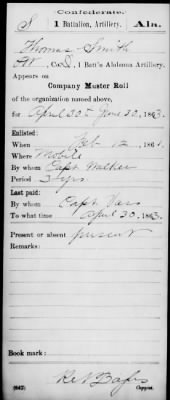 Confederate.
S | 1 Battalion, Artillery. | Ala.
Thomas Smith
Pvt, Co. , 1 Batt'n Alabama Artillery.
Appears on
Company Muster Roll
of the organization named above,
for April 30 to June 30, 1863.
Enlisted:
When Feb 12, 186
Where Mobile
By whom Capt Walker
Period 3 yrs.
Last paid:
By whom Capt
To what time April 30, 1863.
Present or absent present
Remarks:
Book mark:
(642)
Copyist.